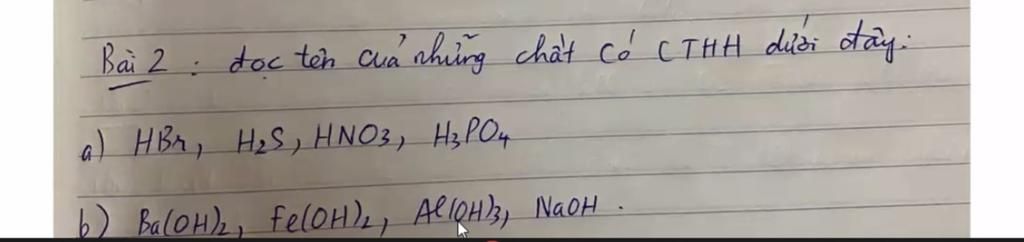 Bài 2 : đọc tên của những chất có CTHH dưới đây:
a) HBr, H₂S, HNO3, H₃PO₄
b) Ba(OH)₂, Fe(OH)₂, Al(OH)3, NaOH .